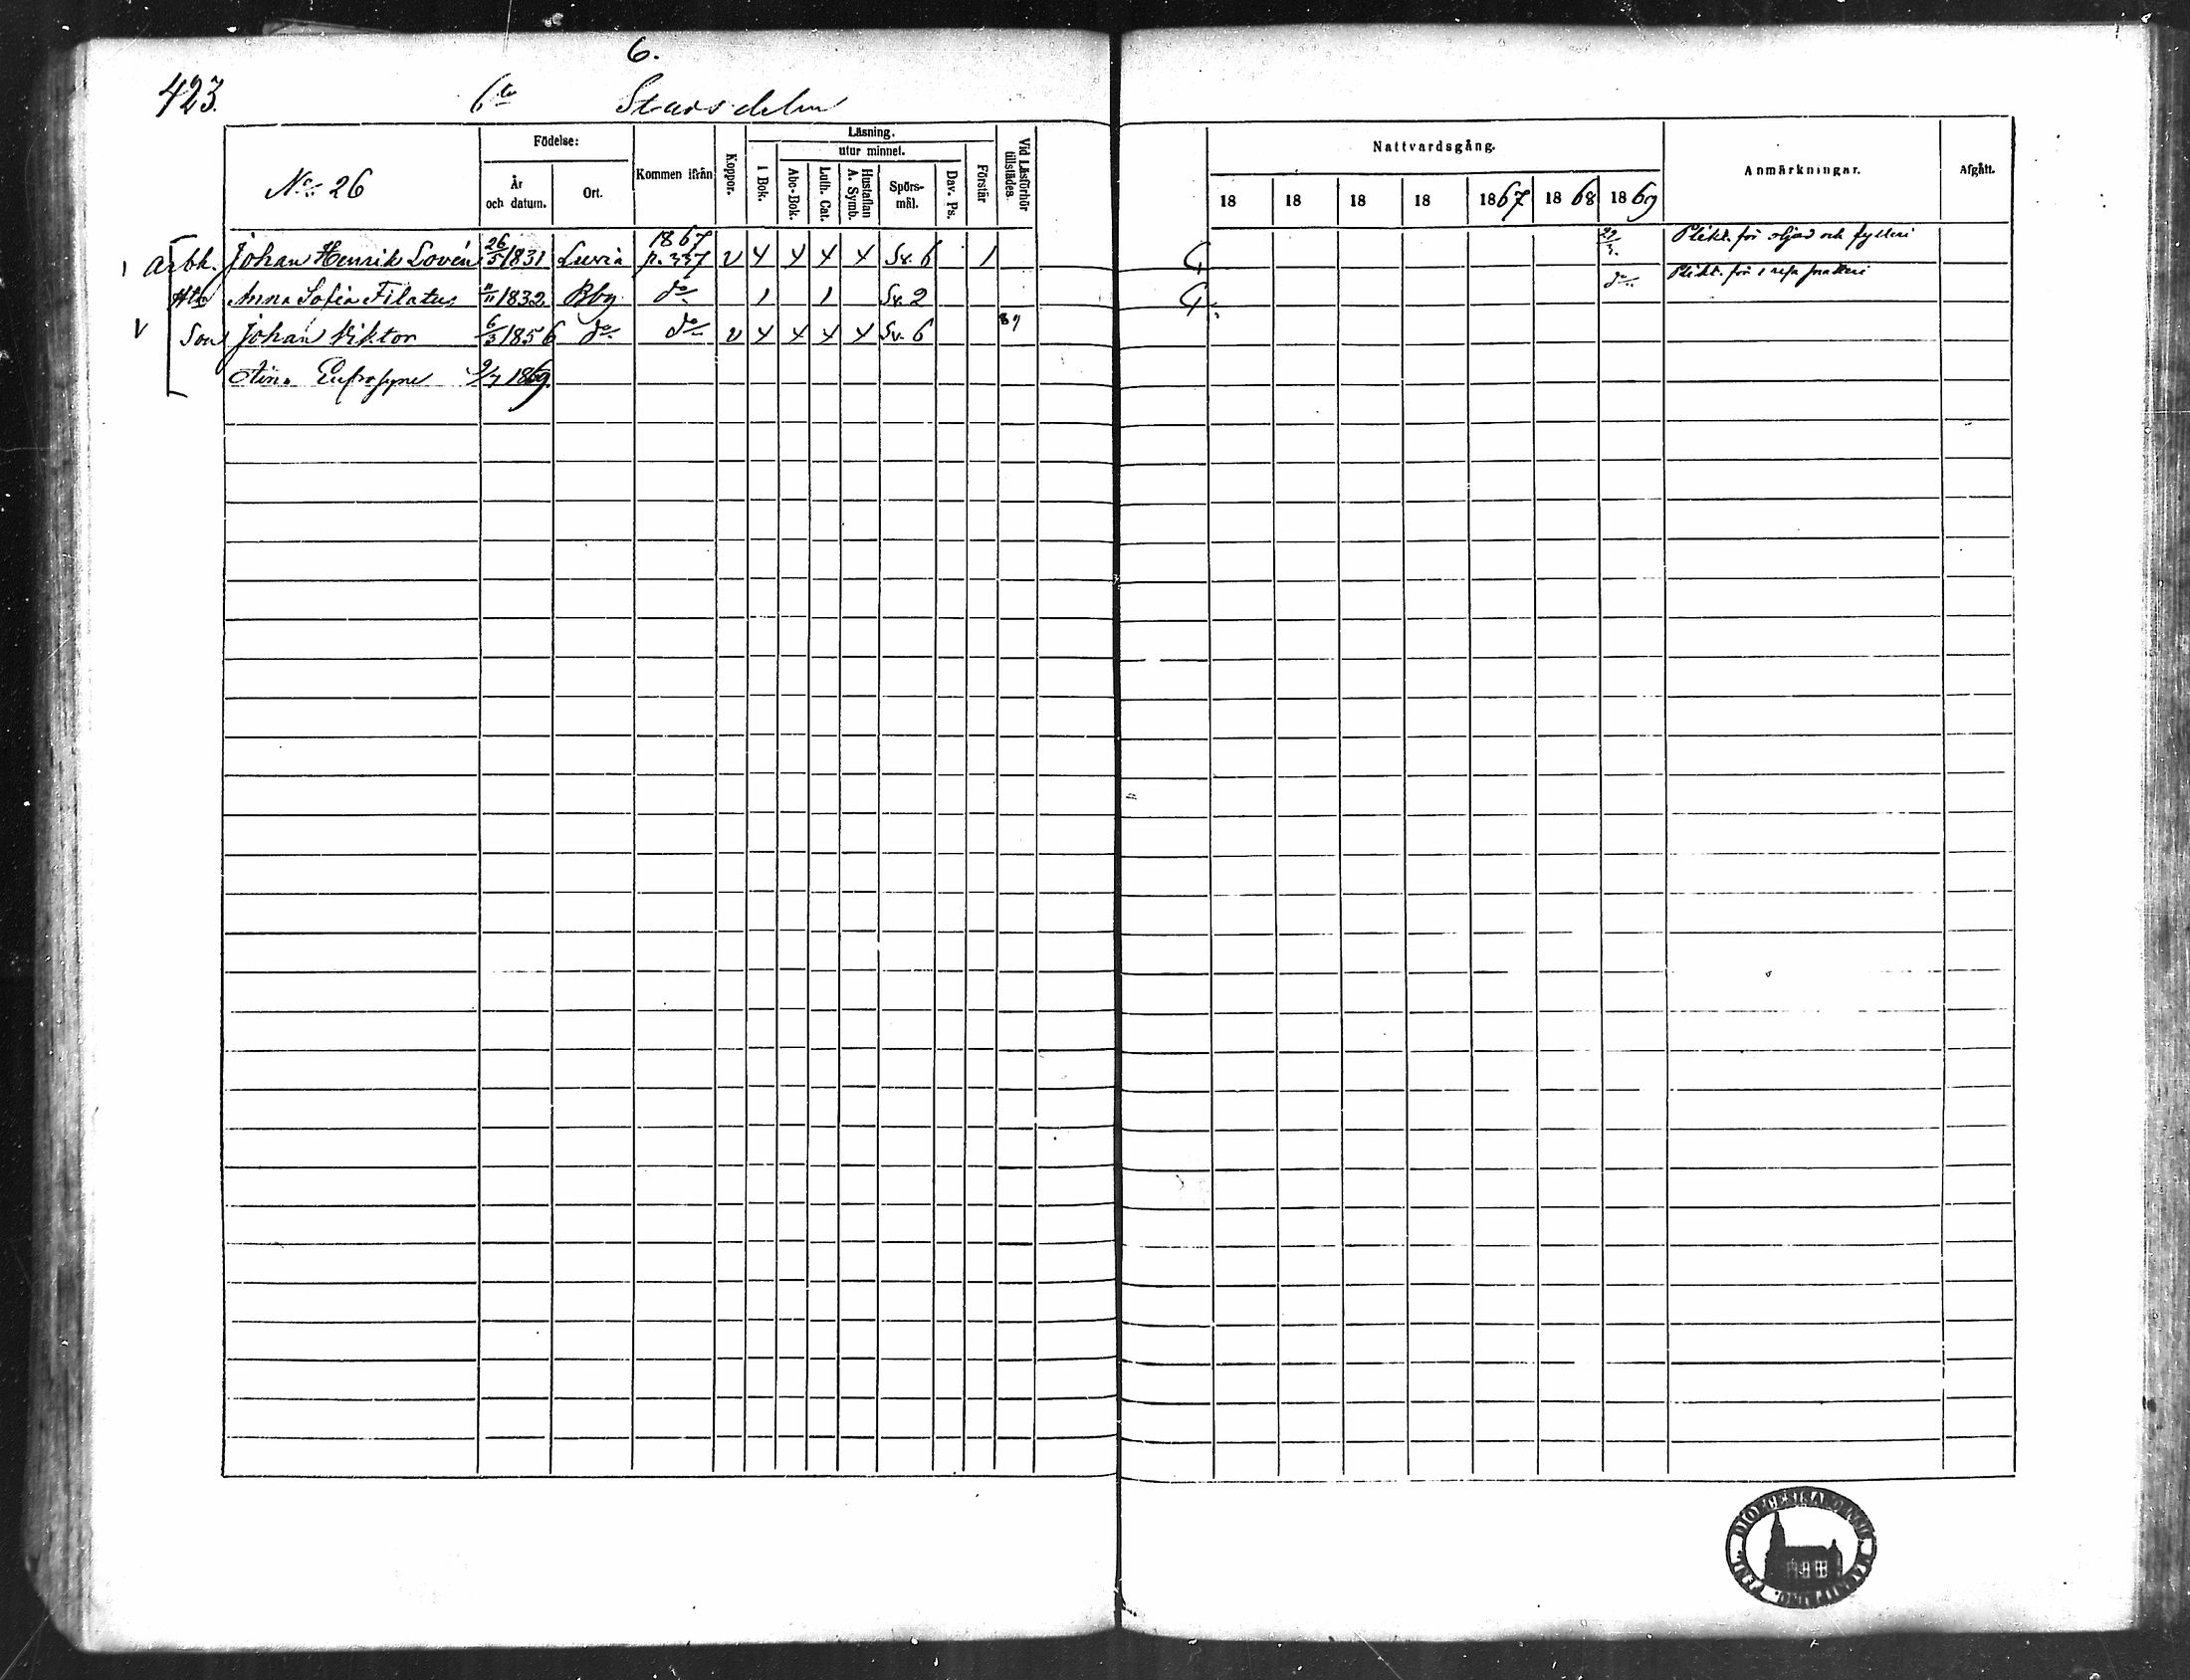 6.
423. 6te Stadsdelen
No 26
Födelse:
År och datum.
Ort.
Kommen ifrån
Koppor.
Läsning.
I Bok.
utur minnet.
Abc-Bok.
Luth. Cat.
Hustaflan A. Symb.
Spörsmål.
Dav. Ps.
Förstår
Vid Läsförhör tillstädes.
Nattvardsgång.
18 18 18 18 1867 1868 1869
Anmärkningar.
Afgått.
Arbk. Johan Henrik Lovén 26/5 1831 Luvia 1867 p. 337 v x x x x Sv. 6 1 G 29/3. Plikt. för och fylleri
Hu Anna Sofia Filatus 11/11 1832 Bbg do 1 1 Sv. 2 G do Plikt. för 1 resa snatteri
v Son Johan Viktor 6/3 1856 do do v x x x x Sv. 6 89
Aina Eufrosyne 9/7 1869